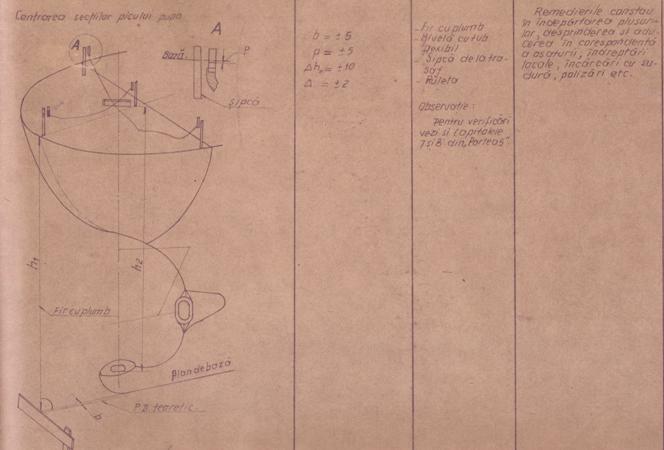 Centrarea secțiilor picului pupa
A
A
Bază
P
Șipcă
h1
h2
Fir cu plumb
plan de bază
P.B. teoretic.
b
b = ±5
p = ±5
Δh₂ = ±10
Δ = ±2
- Fir cu plumb
- Nivelă cu tub
flexibil
- Șipcă de la tra-
saj
- Ruletă
Observație:
Pentru verificări
vezi și capitolele
7 și 8 din „Partea 5"
Remedierile constau
în îndepărtarea plusuri-
lor, desprinderea și adu-
cerea în corespondență
a osaturii, îndreptări
locale, încărcări cu su-
dură, polizări etc.